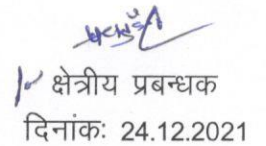 क्षेत्रीय प्रबन्धक
दिनांकः 24.12.2021